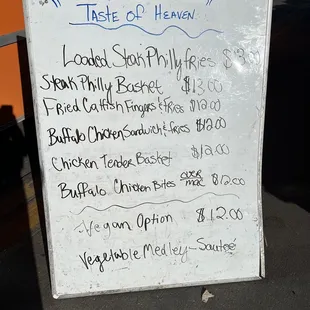 Taste of Heaven
Loaded Steak Philly fries
Steak Philly Basket $13.00
Fried Catfish Fingers & Fries $12.00
Buffalo Chicken Sandwich & fries $12.00
Chicken Tender Basket $12.00
Buffalo Chicken Bites over mac $12.00
Vegan Option $12.00
Vegetable Medley - Sauteé